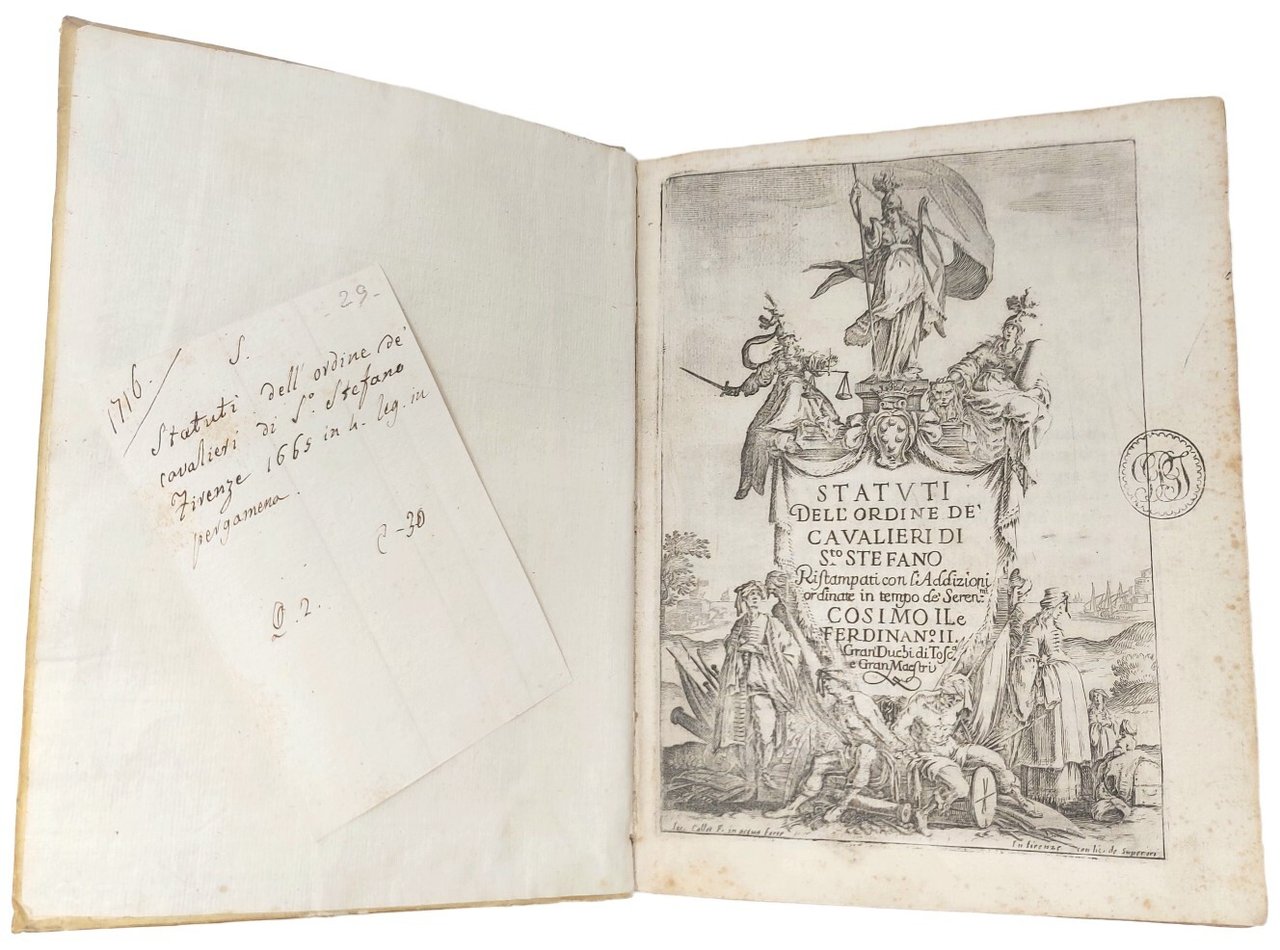 29-
1716.
S.
Statuti dell'ordine de'
cavalieri di S.º Stefano
Firenze 1665 in 4. leg. in
pergamena.
C-30
Q. 2.
STATVTI
DELL'ORDINE DE'
CAVALIERI DI
S.to STEFANO
Ristampati con l'Addizioni
ordinate in tempo de' Seren.mi
COSIMO II. e
FERDINAN.o II.
Gran Duchi di Tosc.a
e Gran Maestri
Iac. Callot F. in acqua forte
In firenze con lic. de Superiori